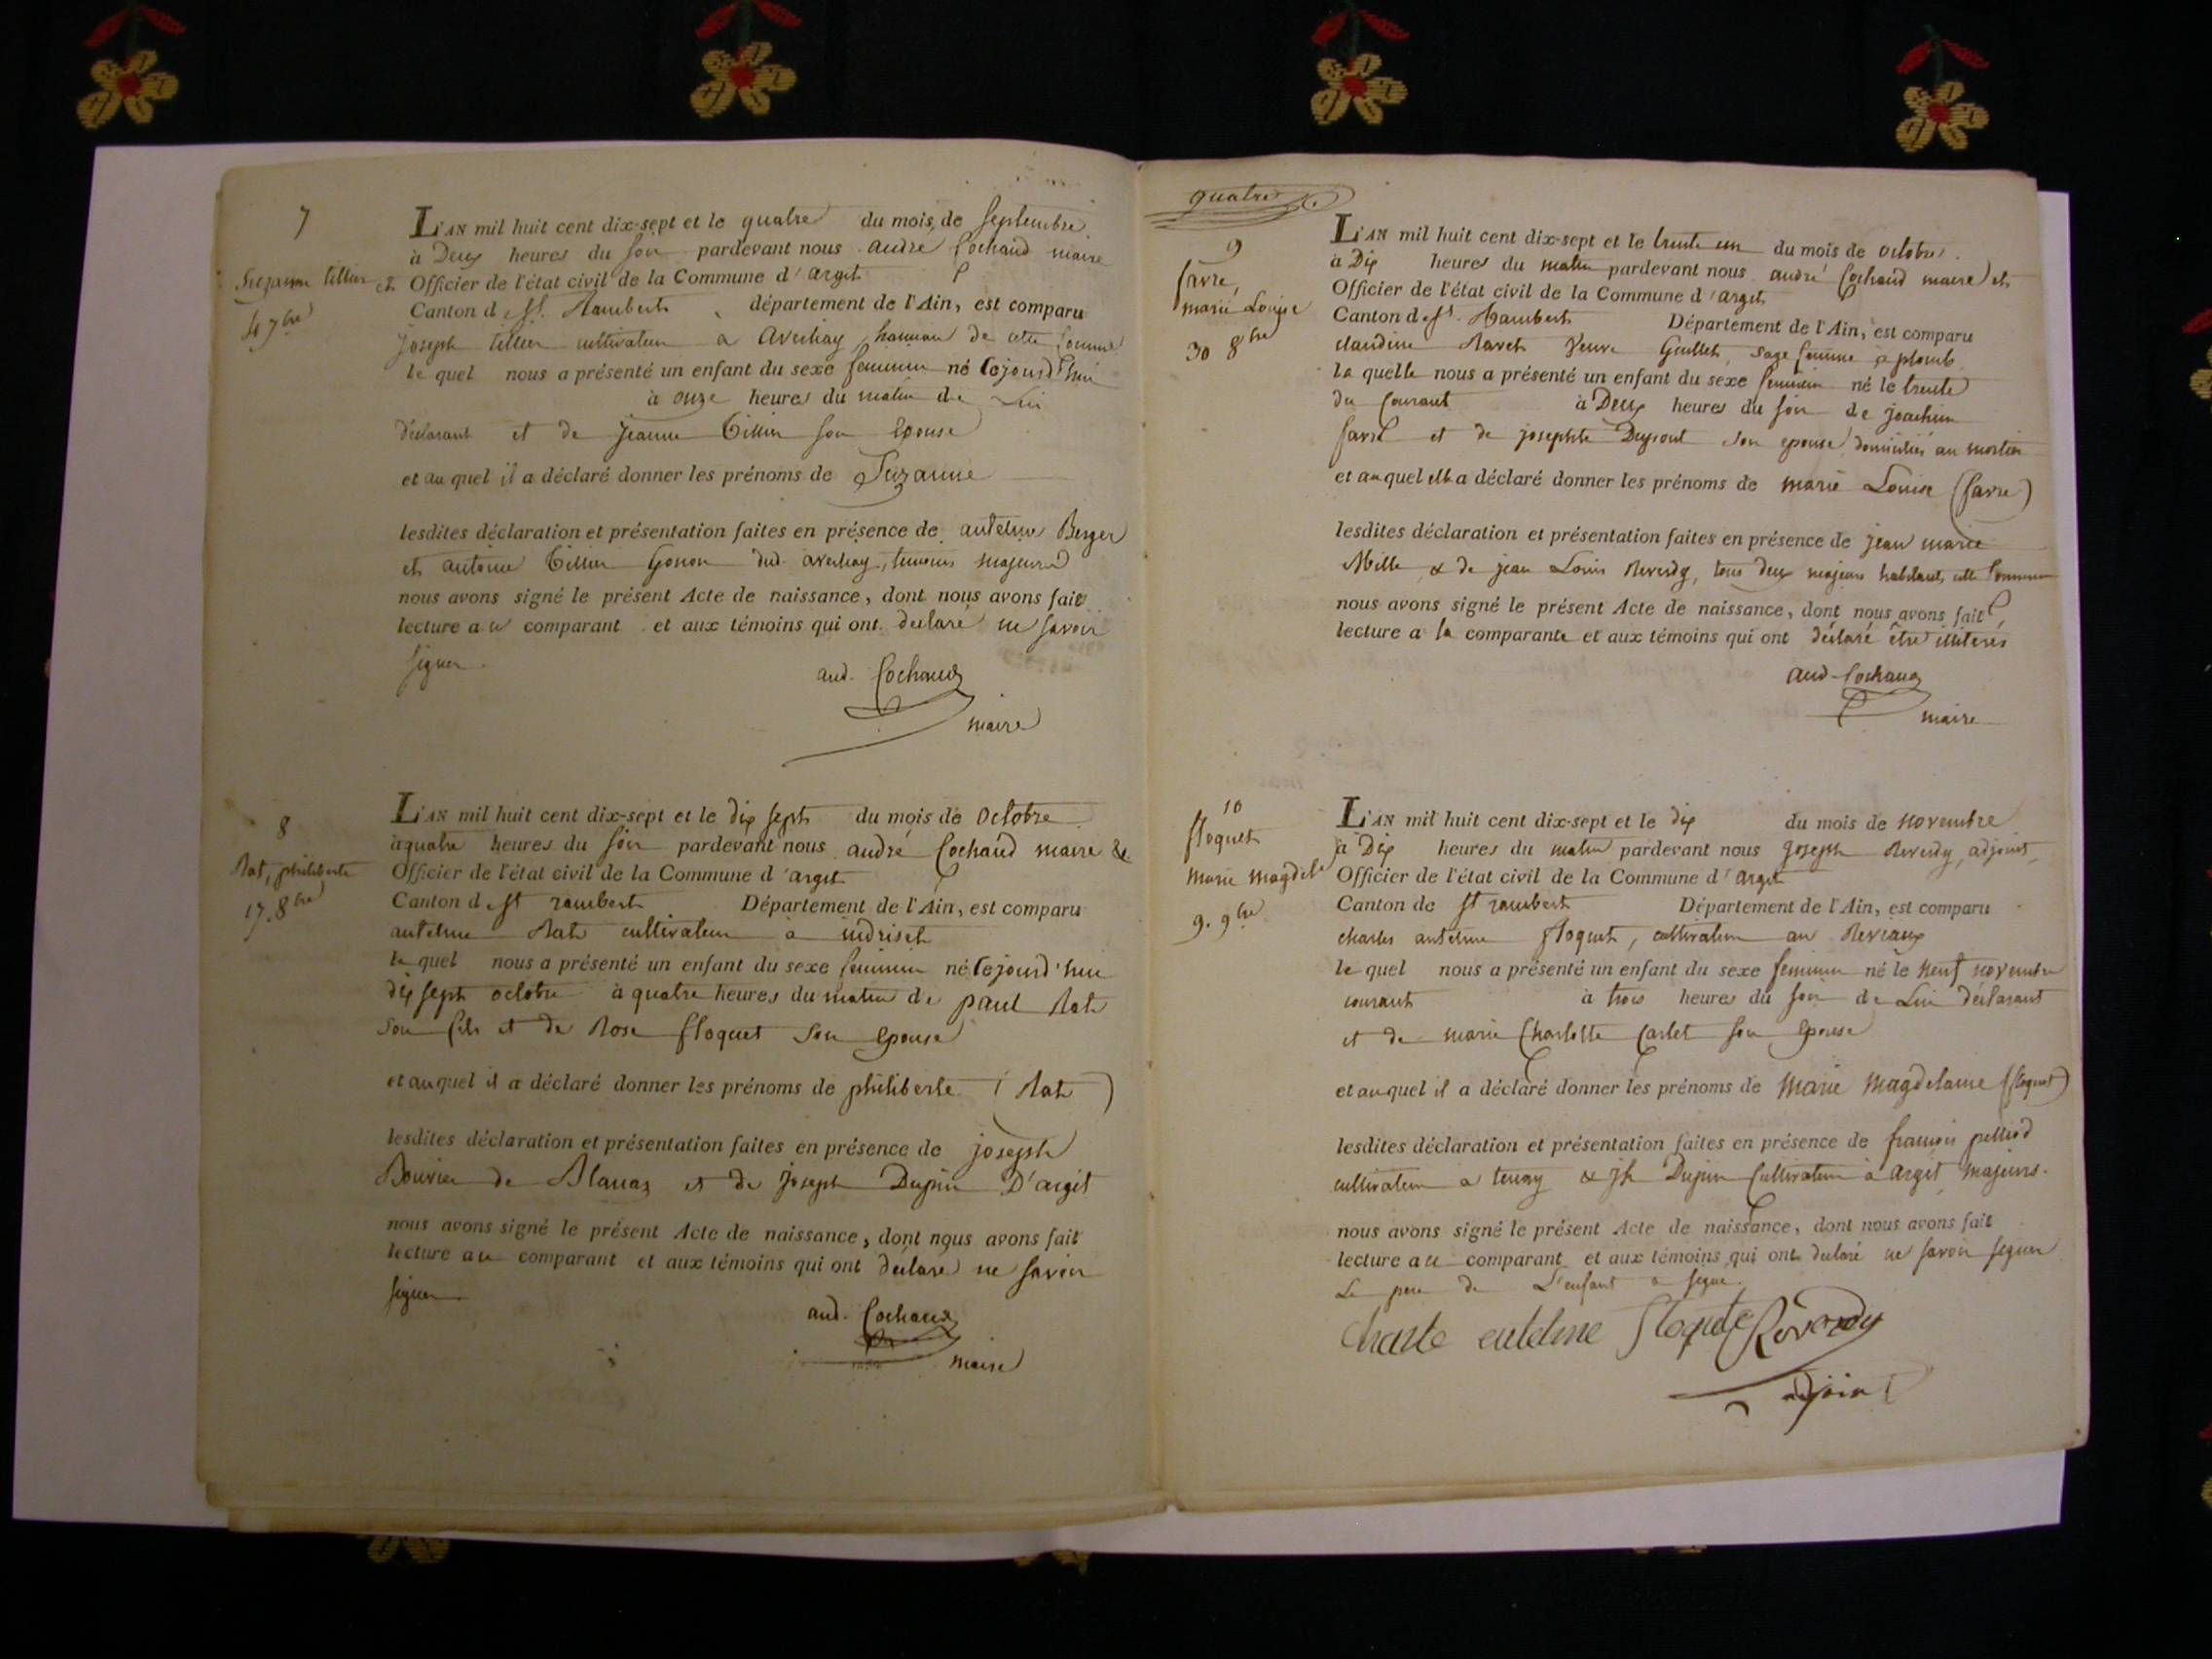 7
Suzanne tillier
4 7bre
L'AN mil huit cent dix-sept et le quatre du mois de Septembre
à Deux heures du soir pardevant nous andré Cochaud maire
et Officier de l'état civil de la Commune d'argit
Canton de St. Rambert, département de l'Ain, est comparu
joseph tillier cultivateur a averliay hameau de cette Comune
le quel nous a présenté un enfant du sexe feminin né Cejourd'hui
à onze heures du matin de Lui
déclarant et de jeanne tillier son Epouse
et au quel il a déclaré donner les prénoms de Suzanne
lesdites déclaration et présentation faites en présence de antelme Berger
et antoine tillier Gonon dud. averliay, temoins majeurs
nous avons signé le présent Acte de naissance, dont nous avons fait
lecture au comparant et aux témoins qui ont declaré ne savoir
signer.
and. Cochaud
maire
8
Rat, philiberte
17. 8bre
L'AN mil huit cent dix-sept et le dix sept du mois de octobre
à quatre heures du soir pardevant nous andré Cochaud maire &
Officier de l'état civil de la Commune d'argit
Canton de st rambert Département de l'Ain, est comparu
antelme Rat cultivateur a indriset
le quel nous a présenté un enfant du sexe feminin né Cejourd'hui
dix sept octobre à quatre heures du matin de paul Rat
son fils et de Rose floquet son Epouse
et au quel il a déclaré donner les prénoms de philiberte (Rat)
lesdites déclaration et présentation faites en présence de joseph
Bouvier de Blanaz et de joseph Dupin D'argit
nous avons signé le présent Acte de naissance, dont nous avons fait
lecture au comparant et aux témoins qui ont déclaré ne savoir
signer
and. Cochaud
maire
quatre
9
favre,
marie Louise
30 8bre
L'AN mil huit cent dix-sept et le trente un du mois de octobre
à Dix heures du matin pardevant nous andré Cochaud maire et
Officier de l'état civil de la Commune d'argit
Canton de st. Rambert Département de l'Ain, est comparu
claudine Ravet Veuve Guillet, sage femme a plomb
la quelle nous a présenté un enfant du sexe feminin né le trente
du Courant à Deux heures du soir de joachim
favre et de josephte Dupont son epouse domiciliés au mortier
et au quel elle a déclaré donner les prénoms de marie Louise (favre)
lesdites déclaration et présentation faites en présence de jean marie
Mille & de jean Louis Reverdy, tous deux majeurs habitants cette Commune
nous avons signé le présent Acte de naissance, dont nous avons fait
lecture a la comparante et aux témoins qui ont déclaré être illiterés
and. Cochaud
maire
10
floquet
marie magdele
9. 9bre
L'AN mil huit cent dix-sept et le dix du mois de novembre
à Dix heures du matin pardevant nous joseph Reverdy, adjoint
Officier de l'état civil de la Commune d'argit
Canton de st rambert Département de l'Ain, est comparu
charles antelme floquet, cultivateur au
le quel nous a présenté un enfant du sexe feminin né le neuf novembre
courant à trois heures du soir de Lui déclarant
et de marie Charlotte Carlet son Epouse
et au quel il a déclaré donner les prénoms de marie magdelaine (floquet)
lesdites déclaration et présentation faites en présence de françois
cultivateur a tenay & jh Dupin Cultivateur à argit, majeurs.
nous avons signé le présent Acte de naissance, dont nous avons fait
lecture au comparant et aux témoins qui ont declaré ne savoir signer
Le pere de L'enfant a signé.
Charle entelme floquet Reverdy
adjoint